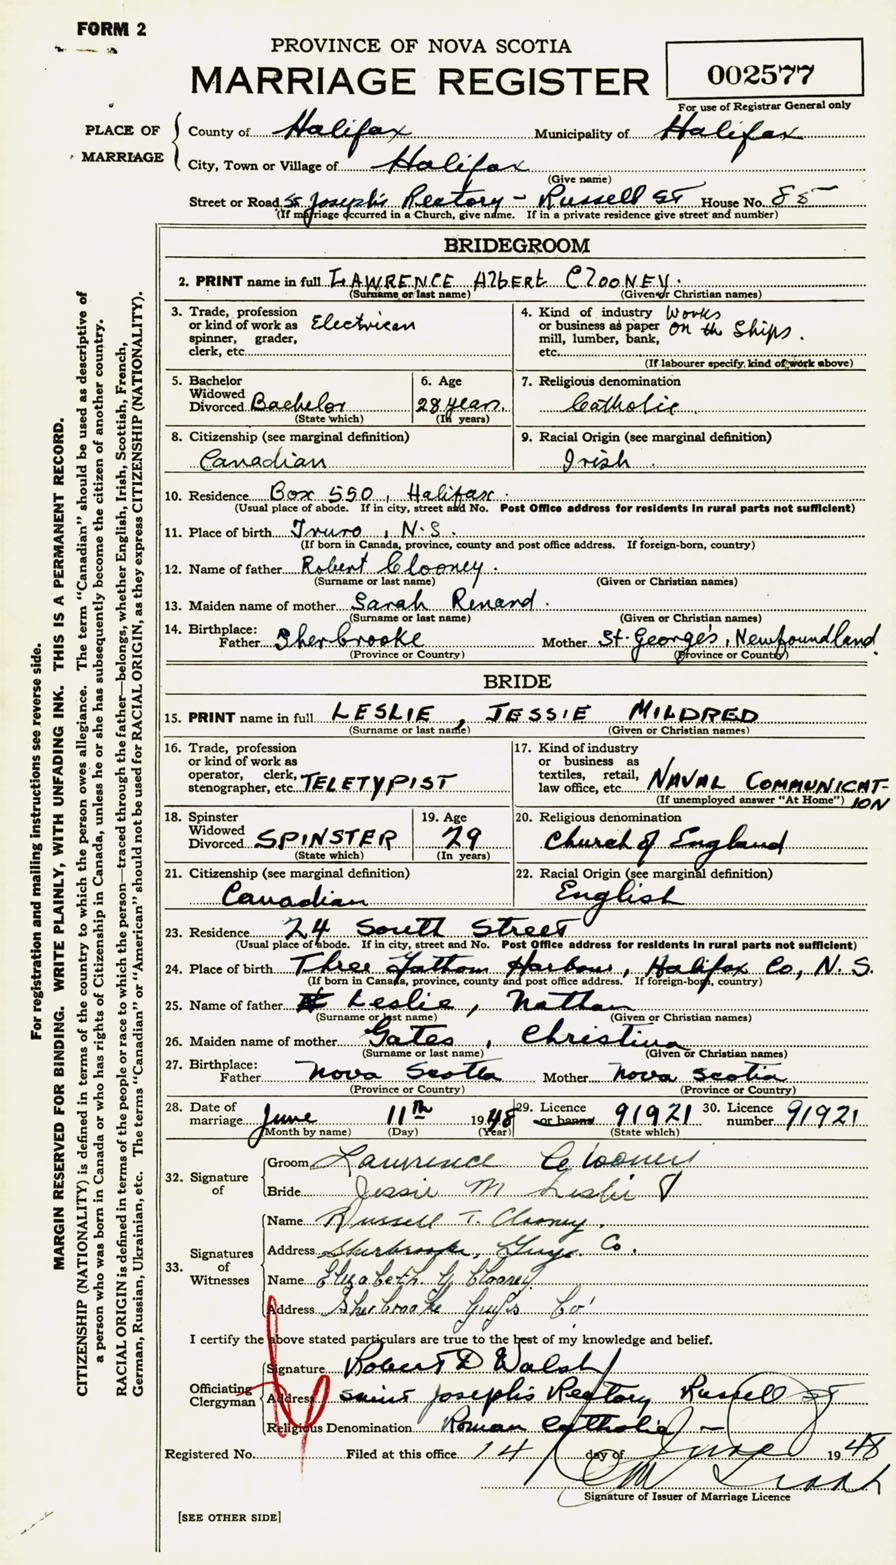 FORM 2
PROVINCE OF NOVA SCOTIA
MARRIAGE REGISTER
002577
For use of Registrar General only
PLACE OF MARRIAGE
County of Halifax Municipality of Halifax
City, Town or Village of Halifax
(Give name)
Street or Road St Joseph's Rectory - Russell St House No. 85
(If marriage occurred in a Church, give name. If in a private residence give street and number)
BRIDEGROOM
2. PRINT name in full LAWRENCE AlbERt ClOONEY.
(Surname or last name) (Given or Christian names)
3. Trade, profession or kind of work as spinner, grader, clerk, etc. Electrican
4. Kind of industry or business as paper mill, lumber, bank, etc. Works on the Ships.
(If labourer specify, kind of work above)
5. Bachelor Widowed Divorced Bachelor
(State which)
6. Age 28 years.
(In years)
7. Religious denomination
Catholic
8. Citizenship (see marginal definition)
Canadian
9. Racial Origin (see marginal definition)
Irish
10. Residence Box 550, Halifax.
(Usual place of abode. If in city, street and No. Post Office address for residents in rural parts not sufficient)
11. Place of birth Truro, N.S.
(If born in Canada, province, county and post office address. If foreign-born, country)
12. Name of father Robert Clooney.
(Surname or last name) (Given or Christian names)
13. Maiden name of mother Sarah Renard.
(Surname or last name) (Given or Christian names)
14. Birthplace: Father Sherbrooke Mother St. George's, Newfoundland.
(Province or Country) (Province or Country)
BRIDE
15. PRINT name in full LESLIE, JESSIE MILDRED
(Surname or last name) (Given or Christian names)
16. Trade, profession or kind of work as operator, clerk, stenographer, etc. TELETYPIST
17. Kind of industry or business as textiles, retail, law office, etc. NAVAL COMMUNICATION
(If unemployed answer "At Home")
18. Spinster Widowed Divorced SPINSTER
(State which)
19. Age 29
(In years)
20. Religious denomination
Church of England
21. Citizenship (see marginal definition)
Canadian
22. Racial Origin (see marginal definition)
English
23. Residence 24 South Street
(Usual place of abode. If in city, street and No. Post Office address for residents in rural parts not sufficient)
24. Place of birth Three Fathom Harbour, Halifax Co, N.S.
(If born in Canada, province, county and post office address. If foreign-born, country)
25. Name of father Leslie, Nathan
(Surname or last name) (Given or Christian names)
26. Maiden name of mother Gates, Christina
(Surname or last name) (Given or Christian names)
27. Birthplace: Father Nova Scotia Mother Nova Scotia
(Province or Country) (Province or Country)
28. Date of marriage June 11th 1948 29. Licence or banns 91921 30. Licence number 91921
(Month by name) (Day) (Year) (State which)
32. Signature of
Groom Lawrence Clooney
Bride Jessie M Leslie
33. Signatures of Witnesses
Name Russell T. Clooney.
Address Sherbrooke, Guys. Co.
Name Elizabeth G Clooney
Address Sherbrooke Guys Co'
I certify the above stated particulars are true to the best of my knowledge and belief.
Officiating Clergyman
Signature Robert D Walsh
Address Saint Joseph's Rectory Russell St
Religious Denomination Roman Catholic
Registered No. Filed at this office 14 day of June 1948
Signature of Issuer of Marriage Licence
[SEE OTHER SIDE]
For registration and mailing instructions see reverse side.
MARGIN RESERVED FOR BINDING. WRITE PLAINLY, WITH UNFADING INK. THIS IS A PERMANENT RECORD.
CITIZENSHIP (NATIONALITY) is defined in terms of the country to which the person owes allegiance. The term "Canadian" should be used as descriptive of
a person who was born in Canada or who has rights of Citizenship in Canada, unless he or she has subsequently become the citizen of another country.
RACIAL ORIGIN is defined in terms of the people or race to which the person—traced through the father—belongs, whether English, Irish, Scottish, French,
German, Russian, Ukrainian, etc. The terms "Canadian" or "American" should not be used for RACIAL ORIGIN, as they express CITIZENSHIP (NATIONALITY).